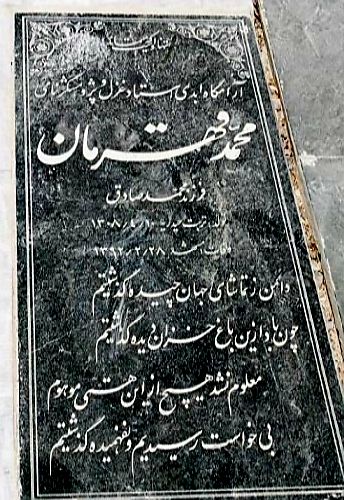 آرامگاه ابدی استاد غزل و پژوهشگر نامی
محمد قهرمان
فرزند محمدصادق
۱۳۰۸
۱۳۹۲/۲/۲۸
دامن ز تماشای جهان چیده گذشتیم
چون باد ازین باغ خزان دیده گذشتیم
معلوم نشد هیچ از این هستی موهوم
بی‌خواست رسیدیم و نفهمیده گذشتیم